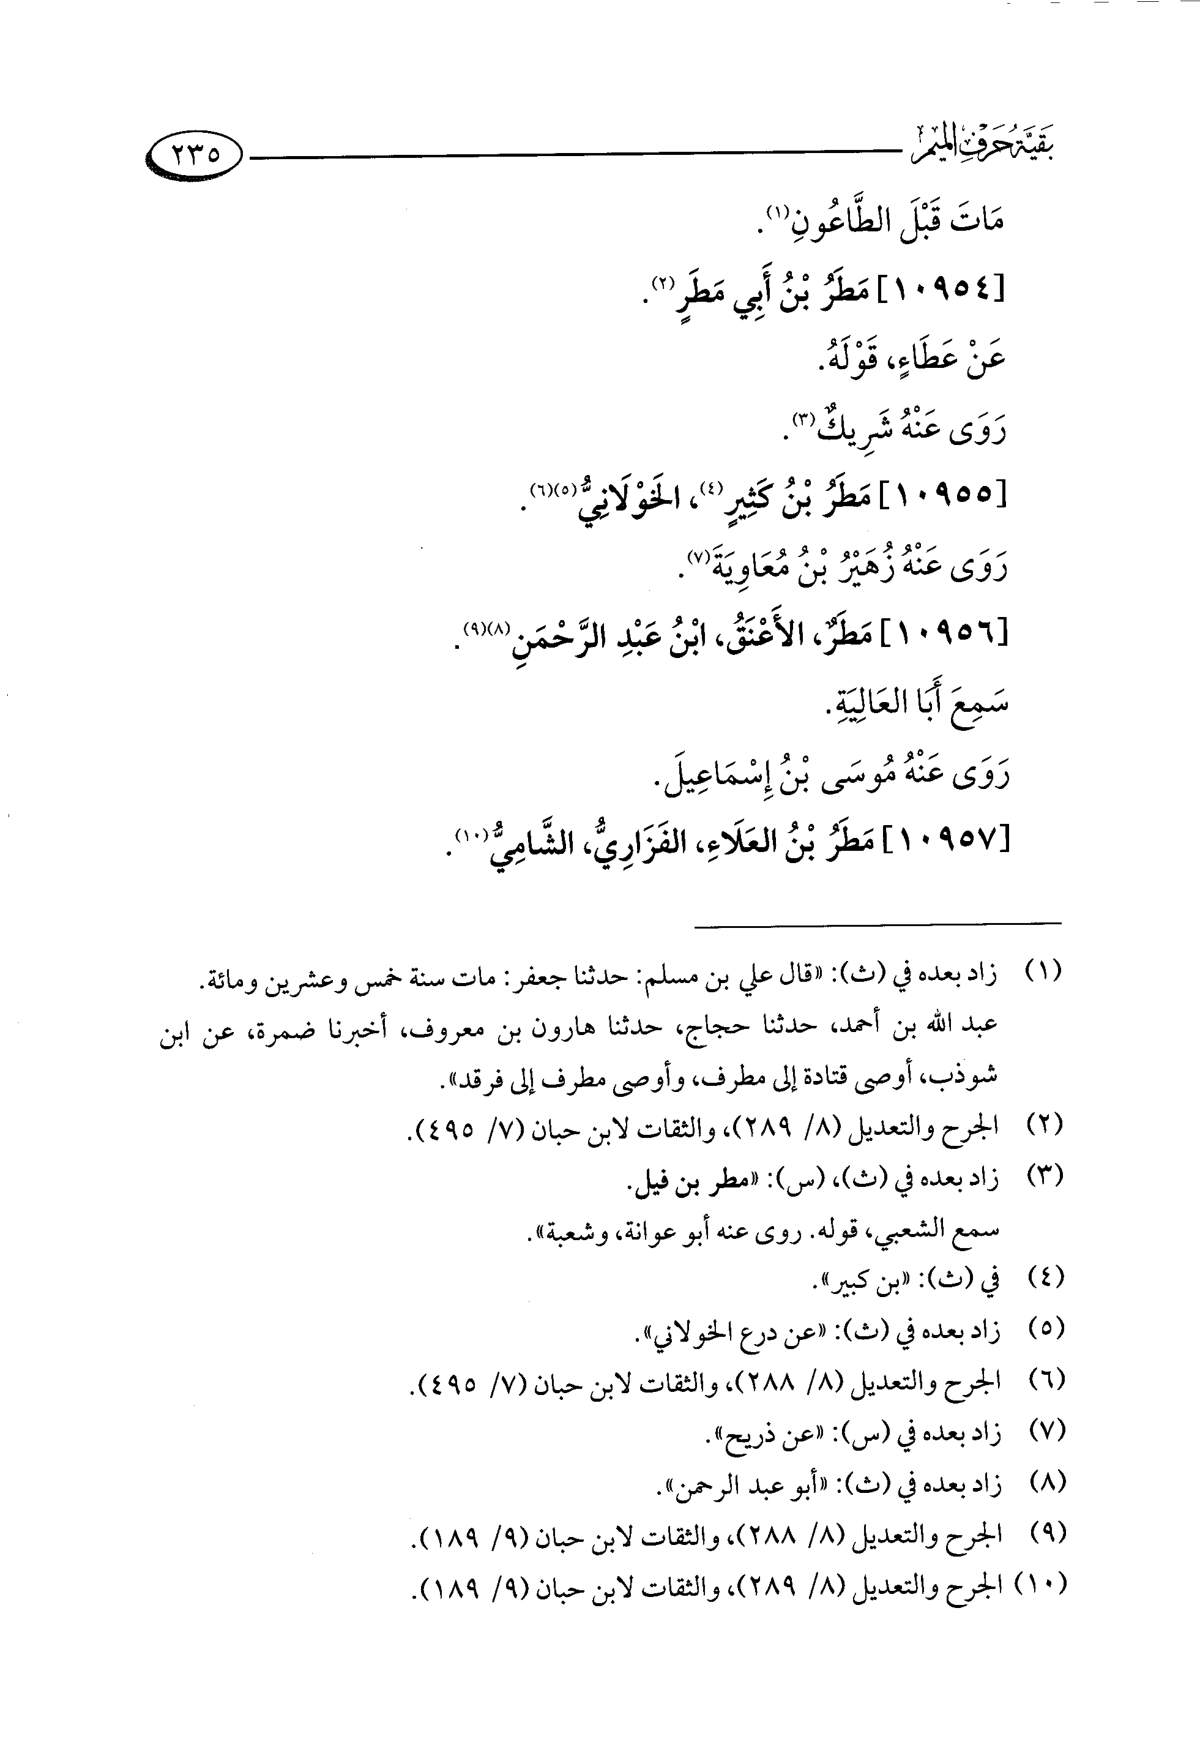 بَقِيَّةُ حَرْفِ المِيمِ
٢٣٥
مَاتَ قَبْلَ الطَّاعُونِ(١).
[١٠٩٥٤] مَطَرُ بْنُ أَبِي مَطَرٍ(٢).
عَنْ عَطَاءٍ، قَوْلَهُ.
رَوَى عَنْهُ شَرِيكٌ(٣).
[١٠٩٥٥] مَطَرُ بْنُ كَثِيرٍ(٤)، الخَوْلَانِيُّ(٥)(٦).
رَوَى عَنْهُ زُهَيْرُ بْنُ مُعَاوِيَةَ(٧).
[١٠٩٥٦] مَطَرٌ، الأَعْنَقُ، ابْنُ عَبْدِ الرَّحْمَنِ(٨)(٩).
سَمِعَ أَبَا العَالِيَةِ.
رَوَى عَنْهُ مُوسَى بْنُ إِسْمَاعِيلَ.
[١٠٩٥٧] مَطَرُ بْنُ العَلَاءِ، الفَزَارِيُّ، الشَّامِيُّ(١٠).
(١) زاد بعده في (ث): «قال علي بن مسلم: حدثنا جعفر: مات سنة خمس وعشرين ومائة.
عبد الله بن أحمد، حدثنا حجاج، حدثنا هارون بن معروف، أخبرنا ضمرة، عن ابن
شوذب، أوصى قتادة إلى مطرف، وأوصى مطرف إلى فرقد».
(٢) الجرح والتعديل (٨/ ٢٨٩)، والثقات لابن حبان (٧/ ٤٩٥).
(٣) زاد بعده في (ث)، (س): «مطر بن فيل.
سمع الشعبي، قوله. روى عنه أبو عوانة، وشعبة».
(٤) في (ث): «بن كبير».
(٥) زاد بعده في (ث): «عن درع الخولاني».
(٦) الجرح والتعديل (٨/ ٢٨٨)، والثقات لابن حبان (٧/ ٤٩٥).
(٧) زاد بعده في (س): «عن ذريح».
(٨) زاد بعده في (ث): «أبو عبد الرحمن».
(٩) الجرح والتعديل (٨/ ٢٨٨)، والثقات لابن حبان (٩/ ١٨٩).
(١٠) الجرح والتعديل (٨/ ٢٨٩)، والثقات لابن حبان (٩/ ١٨٩).